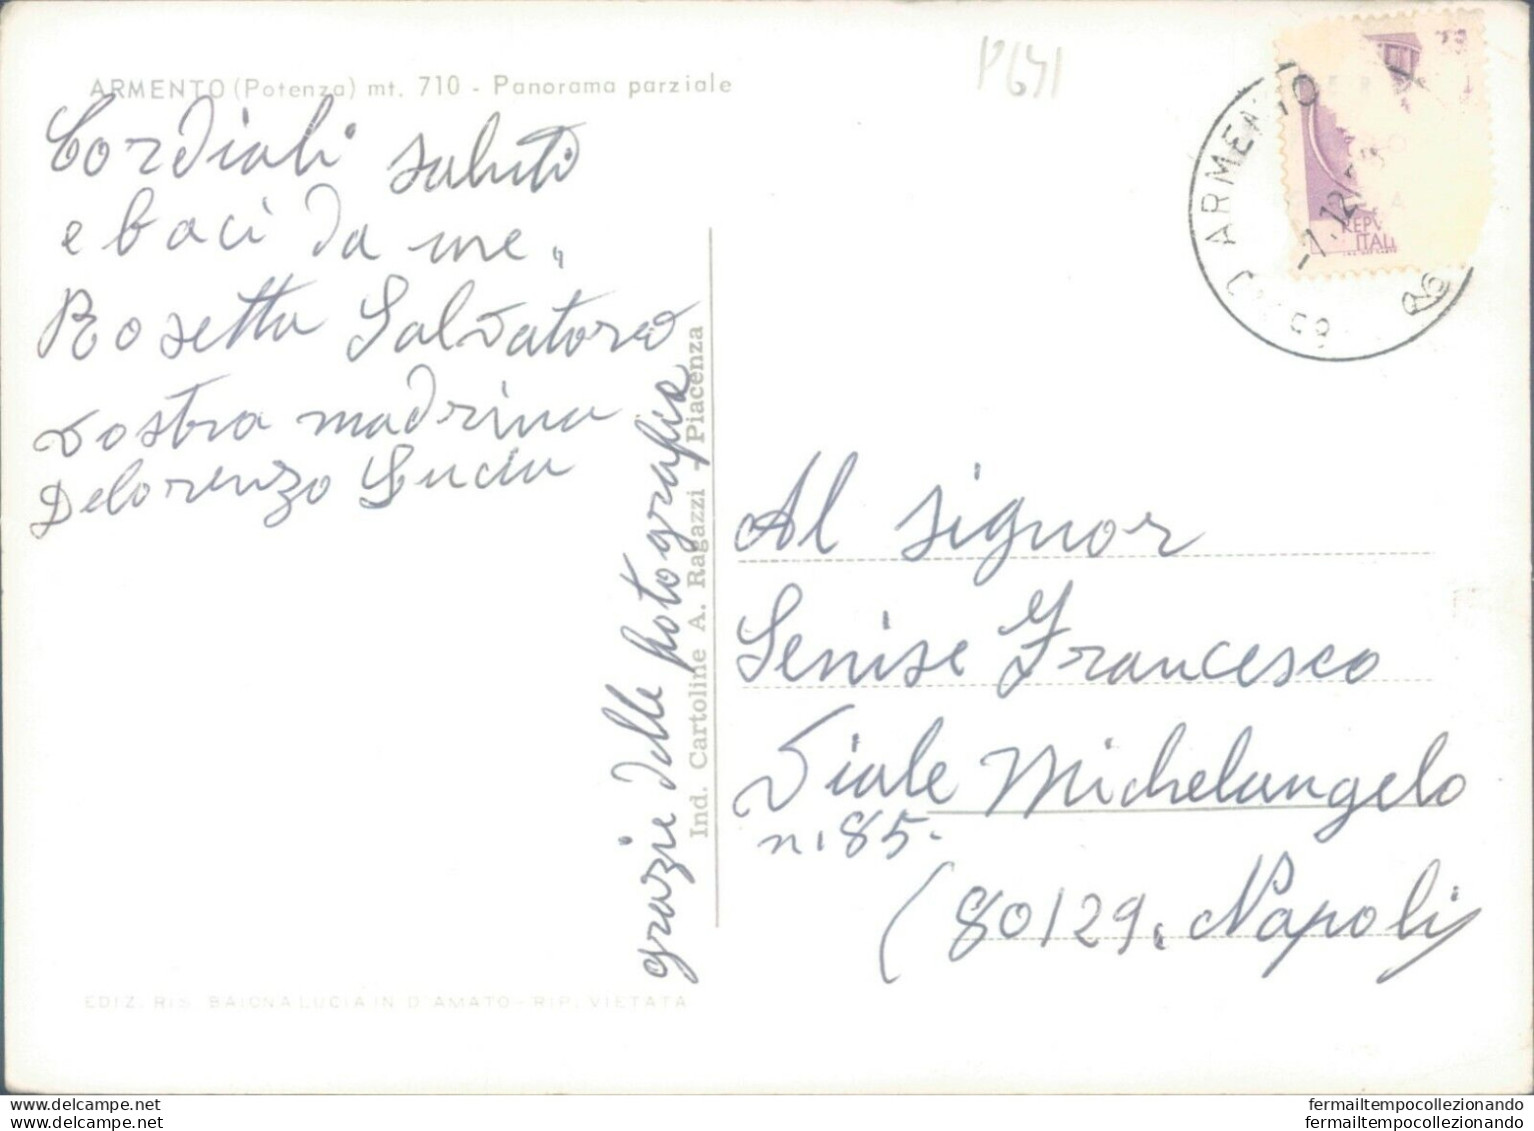 ARMENTO (Potenza) mt. 710 - Panorama parziale
P641
Cordiali saluti
e baci da me,,
Rosetta Salvatore
vostra madrina
Delorenzo Lucia
grazie delle fotografie
Ind. Cartoline A. Ragazzi - Piacenza
ARMENTO
-7.12.
REPV
ITALI
Al signor
Senise Francesco
Viale Michelangelo
n. 85.
(80129. Napoli)
EDIZ. RIS. BAIONA LUCIA IN D'AMATO - RIP. VIETATA
www.delcampe.net
www.delcampe.net
fermailtempocollezionando
fermailtempocollezionando